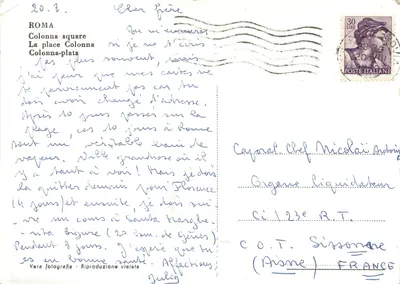 20.8.
Cher frère
ROMA
Colonna square
La place Colonna
Colonna-plats
Tu m'excuses
si je ne t'écris
pas plus souvent, mais
j'ai peur que mes cartes ne
te parviennent pas car tu
dois avoir changé d'adresse.
Après 10 jours passés sur la
plage, ces 10 jours à Rome
sont un véritable bain de
vapeur. Ville grandiose où il
y a tant à voir! Mais je dois
la quitter demain pour Florence
(4 jours) et ensuite, je dois sui-
vre un cours à Santa Marghe-
rita Ligure (20 km. de Gênes)
Pendant 8 jours. J'espère que tu
es en bonne santé. Affectueux,
30
POSTE ITALIANE
Caporal. Chef Nicolaï
Organe Liquidateur
Ci 123e R.T.
C.O.T. Sissonne
(Aisne) FRANCE
Vera fotografia - Riproduzione vietata